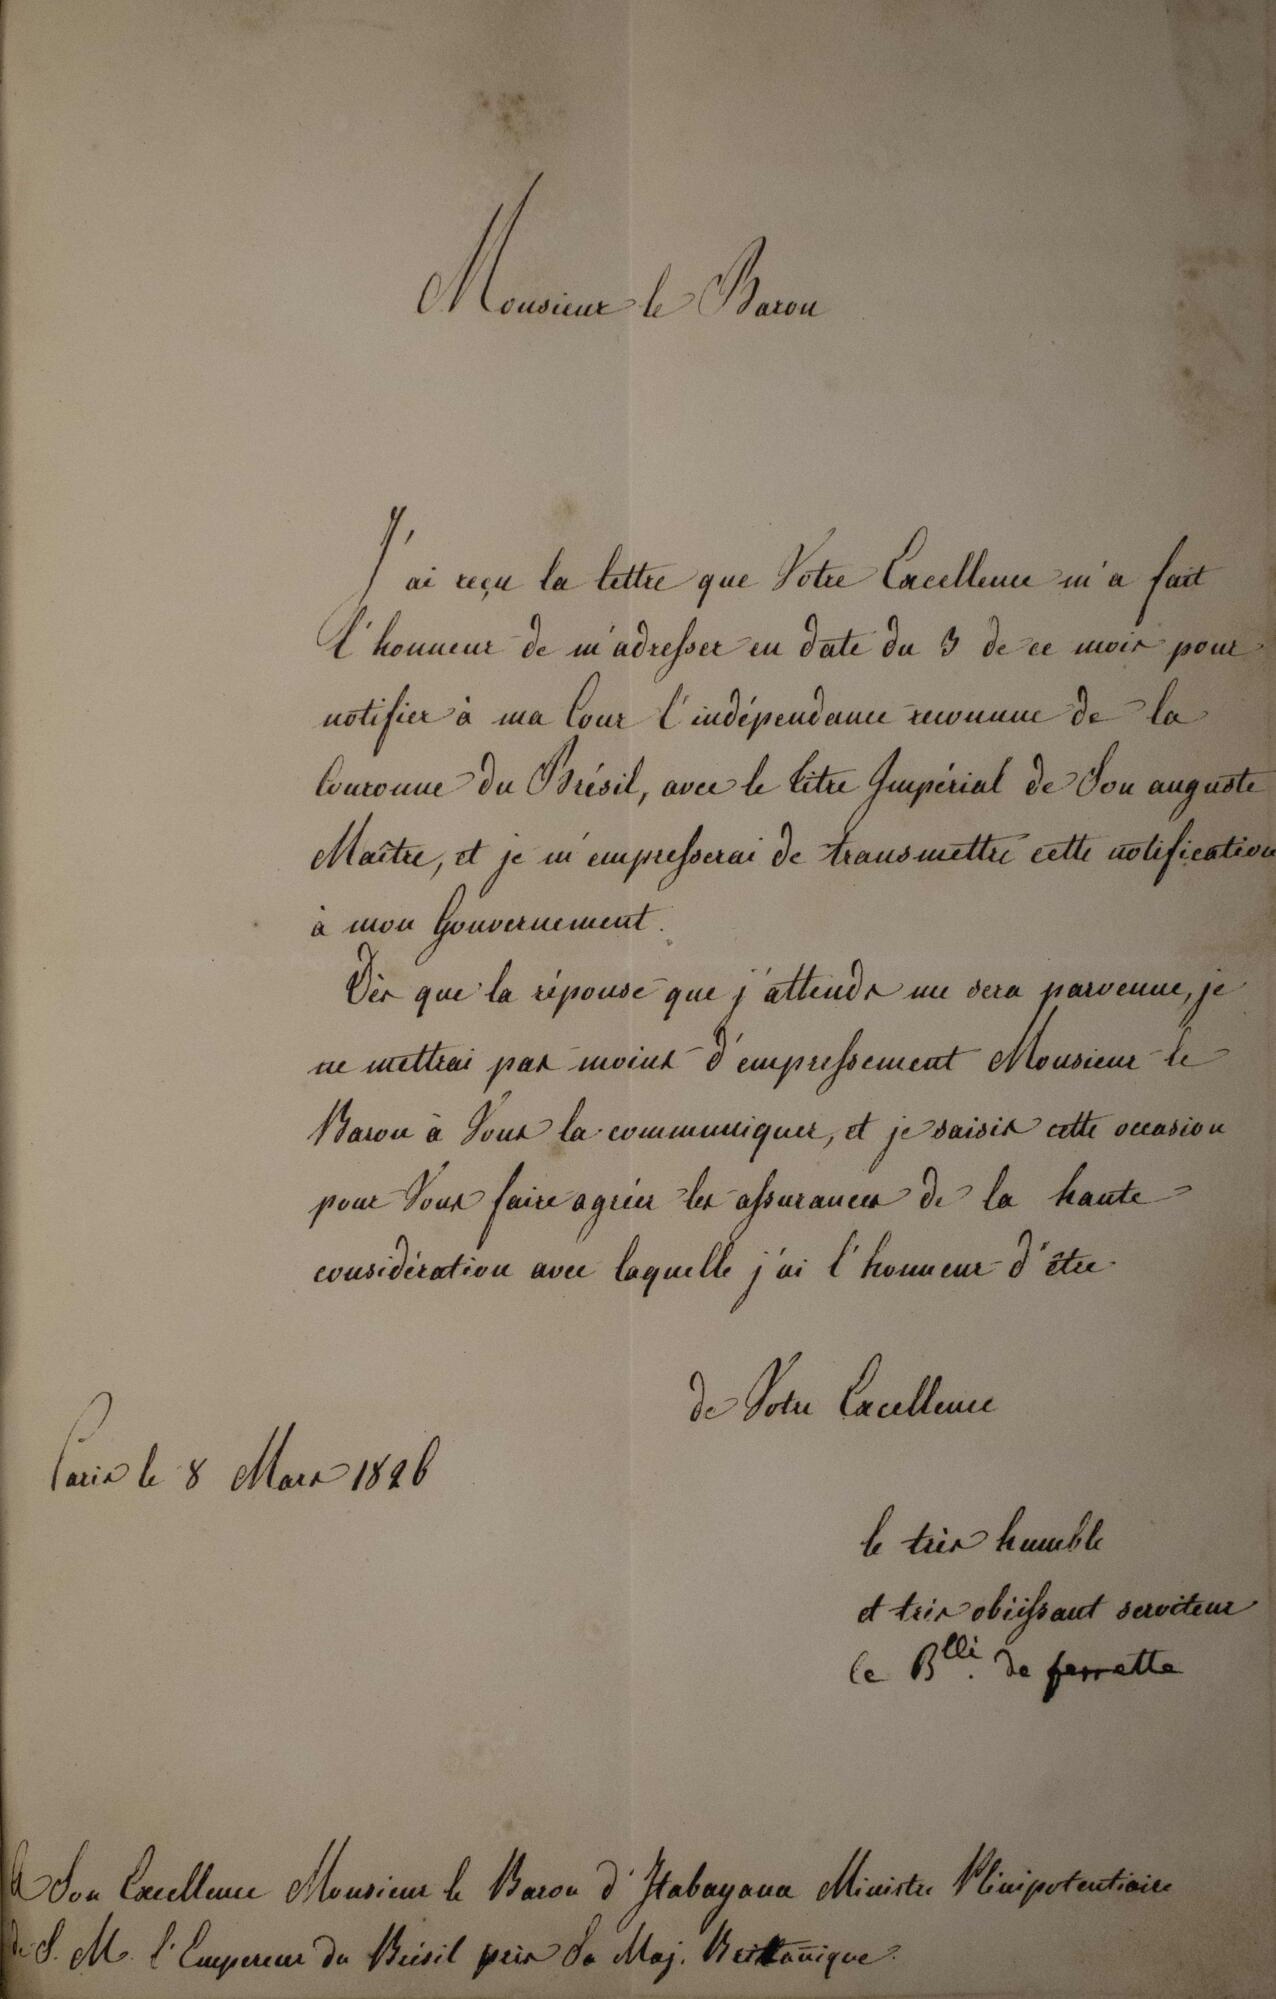 Monsieur le Baron
J'ai reçu la lettre que Votre Excellence m'a fait
l'honneur de m'adresser en date du 3 de ce mois pour
notifier à ma Cour l'indépendance reconnue de la
Couronne du Brésil, avec le titre Impérial de Son auguste
Maître, et je m'empresserai de transmettre cette notification
à mon Gouvernement.
Dès que la réponse que j'attends me sera parvenue, je
ne mettrai pas moins d'empressement Monsieur le
Baron à Vous la communiquer, et je saisis cette occasion
pour Vous faire agréer les assurances de la haute
considération avec laquelle j'ai l'honneur d'être
de Votre Excellence
Paris le 8 Mars 1826
le très humble
et très obéissant serviteur
le B<sup>lli</sup>. de ferrette
A Son Excellence Monsieur le Baron d'Itabayana Ministre Plénipotentiaire
de S. M. l'Empereur du Brésil près Sa Maj. Britannique.